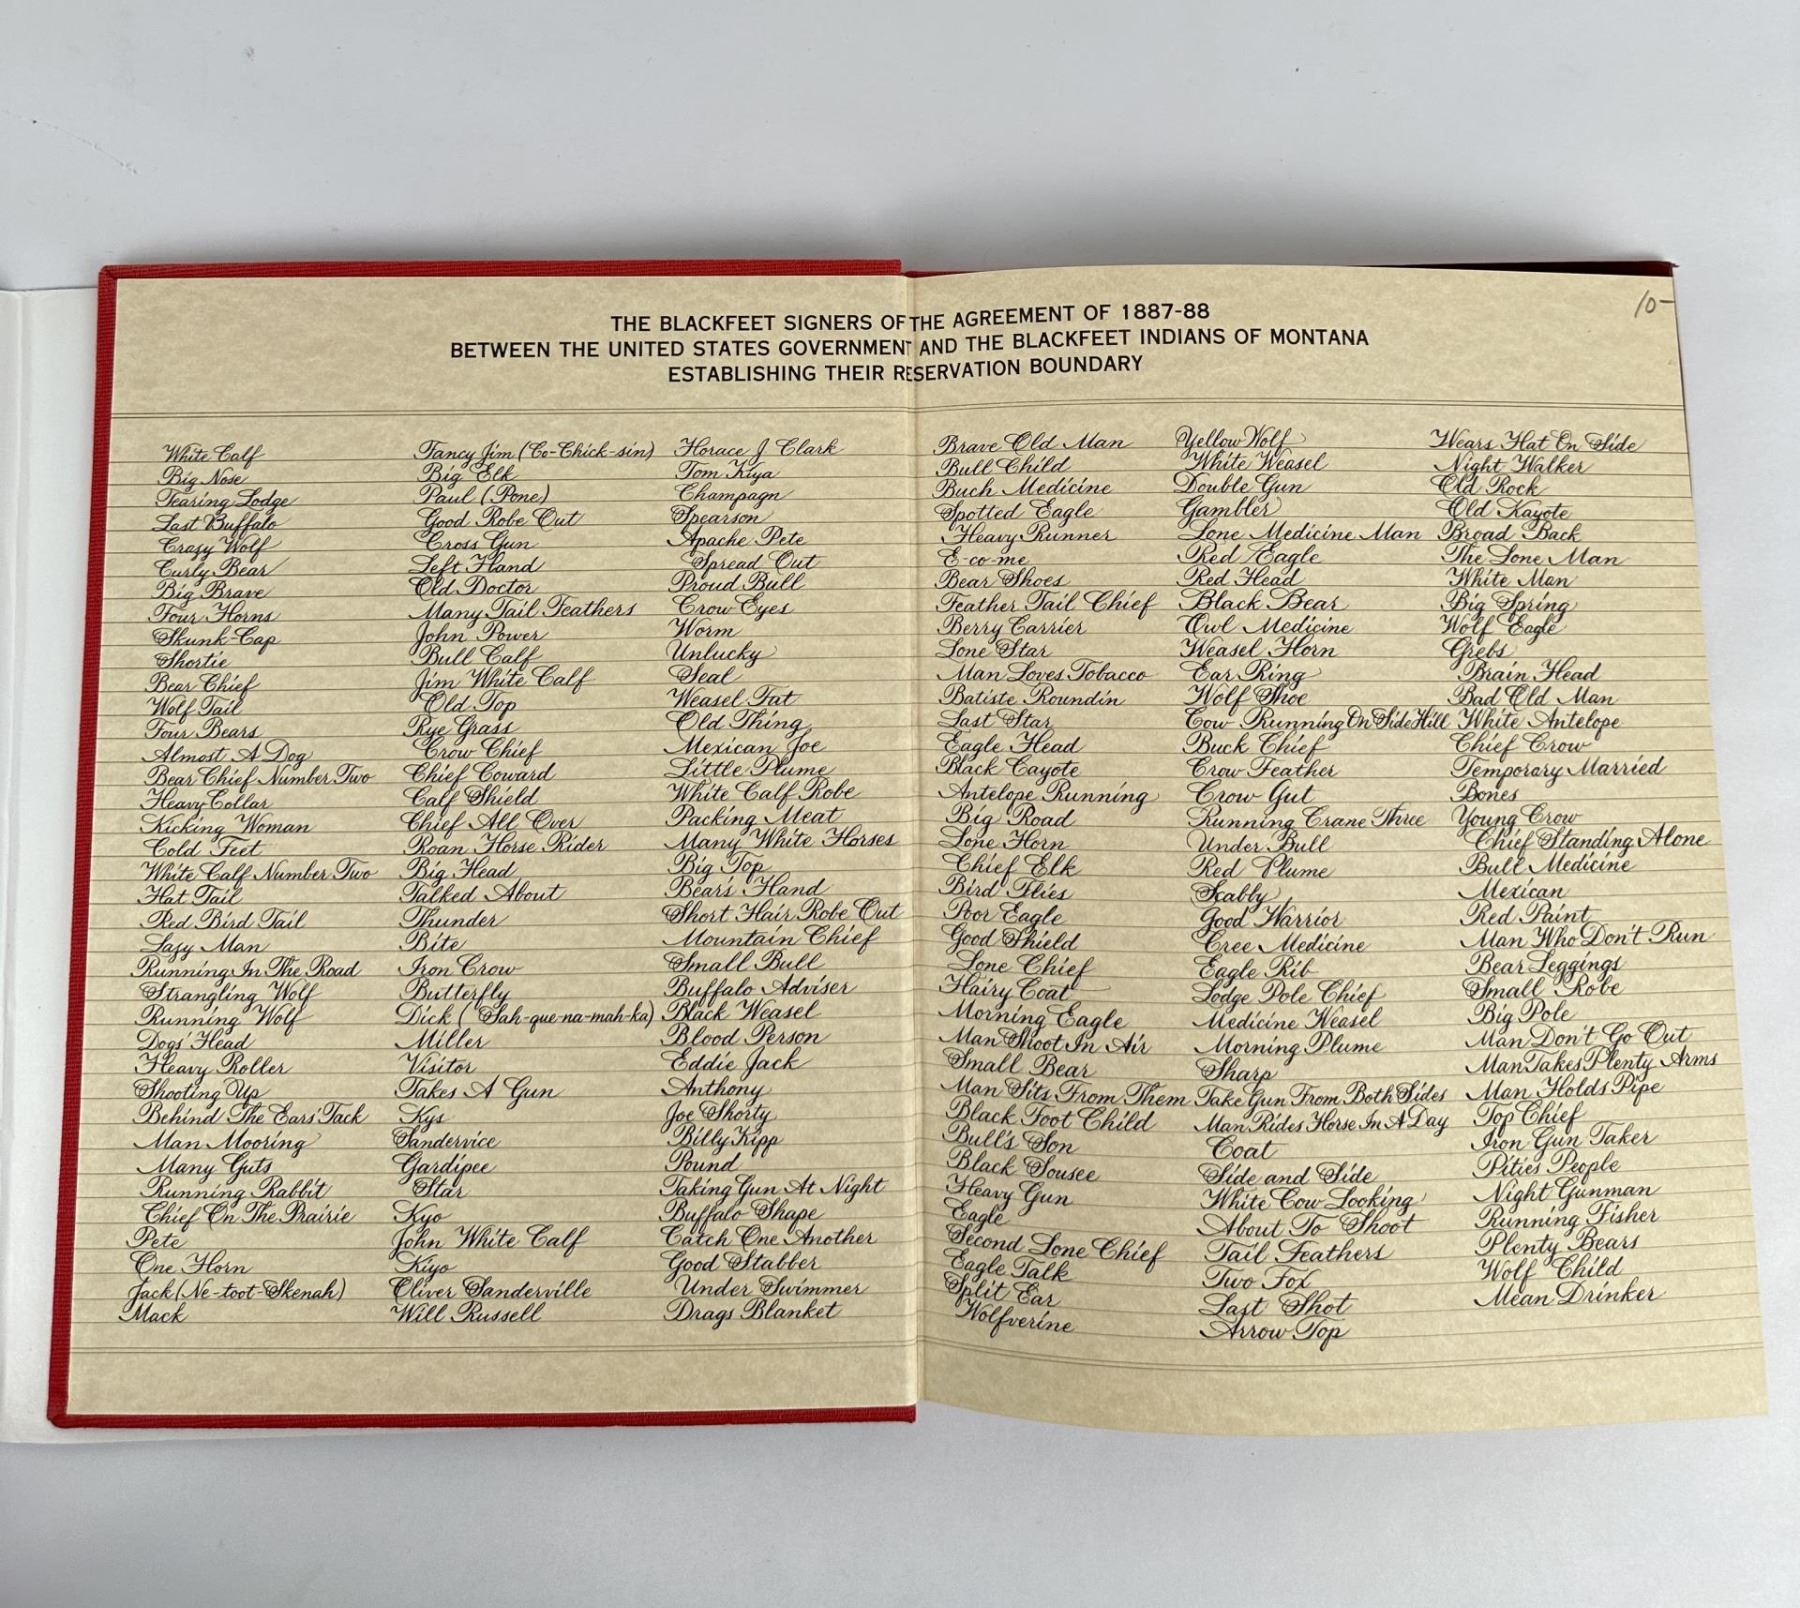 THE BLACKFEET SIGNERS OF THE AGREEMENT OF 1887-88
BETWEEN THE UNITED STATES GOVERNMENT AND THE BLACKFEET INDIANS OF MONTANA
ESTABLISHING THEIR RESERVATION BOUNDARY
10-
White Calf
Big Nose
Tearing Lodge
Last Buffalo
Crazy Wolf
Curly Bear
Big Brave
Four Horns
Skunk Cap
Shortie
Bear Chief
Wolf Tail
Four Bears
Almost A Dog
Bear Chief Number Two
Heavy Collar
Kicking Woman
Cold Feet
White Calf Number Two
Hat Tail
Red Bird Tail
Lazy Man
Running In The Road
Strangling Wolf
Running Wolf
Dogs' Head
Heavy Roller
Shooting Up
Behind The Ears' Tack
Man Mooring
Many Guts
Running Rabbit
Chief On The Prairie
Pete
One Horn
Jack (Ne-toot-Skenah)
Mack
Fancy Jim (Co-Chick-sin)
Big Elk
Paul (Pone)
Good Robe Out
Cross Gun
Left Hand
Old Doctor
Many Tail Feathers
John Power
Bull Calf
Jim White Calf
Old Top
Rye Grass
Crow Chief
Chief Coward
Calf Shield
Chief All Over
Roan Horse Rider
Big Head
Talked About
Thunder
Bite
Iron Crow
Butterfly
Dick (Sah-que-na-mah-ka)
Miller
Visitor
Takes A Gun
Kys
Sandervice
Gardipee
Star
Kyo
John White Calf
Kiyo
Oliver Sanderville
Will Russell
Horace J Clark
Tom Kiya
Champagn
Spearson
Apache Pete
Spread Out
Proud Bull
Crow Eyes
Worm
Unlucky
Seal
Weasel Fat
Old Thing
Mexican Joe
Little Plume
White Calf Robe
Packing Meat
Many White Horses
Big Top
Bear's Hand
Short Hair Robe Out
Mountain Chief
Small Bull
Buffalo Adviser
Black Weasel
Blood Person
Eddie Jack
Anthony
Joe Shorty
Billy Kipp
Pound
Taking Gun At Night
Buffalo Shape
Catch One Another
Good Stabber
Under Swimmer
Drags Blanket
Brave Old Man
Bull Child
Buch Medicine
Spotted Eagle
Heavy Runner
E-co-me
Bear Shoes
Feather Tail Chief
Berry Carrier
Lone Star
Man Loves Tobacco
Batiste Roundin
Last Star
Eagle Head
Black Cayote
Antelope Running
Big Road
Lone Horn
Chief Elk
Bird Flies
Poor Eagle
Good Shield
Lone Chief
Hairy Coat
Morning Eagle
Man Shoot In Air
Small Bear
Man Sits From Them
Black Foot Child
Bull's Son
Black Sousee
Heavy Gun
Eagle
Second Lone Chief
Eagle Talk
Split Ear
Wolfverine
Yellow Wolf
White Weasel
Double Gun
Gambler
Lone Medicine Man
Red Eagle
Red Head
Black Bear
Owl Medicine
Weasel Horn
Ear Ring
Wolf Shoe
Cow Running On Side Hill
Buck Chief
Crow Feather
Crow Gut
Running Crane Three
Under Bull
Red Plume
Scabby
Good Warrior
Cree Medicine
Eagle Rib
Lodge Pole Chief
Medicine Weasel
Morning Plume
Sharp
Take Gun From Both Sides
Man Rides Horse In A Day
Coat
Side and Side
White Cow Looking
About To Shoot
Tail Feathers
Two Fox
Last Shot
Arrow Top
Wears Hat On Side
Night Walker
Old Rock
Old Kayote
Broad Back
The Lone Man
White Man
Big Spring
Wolf Eagle
Grebs
Brain Head
Bad Old Man
White Antelope
Chief Crow
Temporary Married
Bones
Young Crow
Chief Standing Alone
Bull Medicine
Mexican
Red Paint
Man Who Don't Run
Bear Leggings
Small Robe
Big Pole
Man Don't Go Out
Man Takes Plenty Arms
Man Holds Pipe
Top Chief
Iron Gun Taker
Pities People
Night Gunman
Running Fisher
Plenty Bears
Wolf Child
Mean Drinker